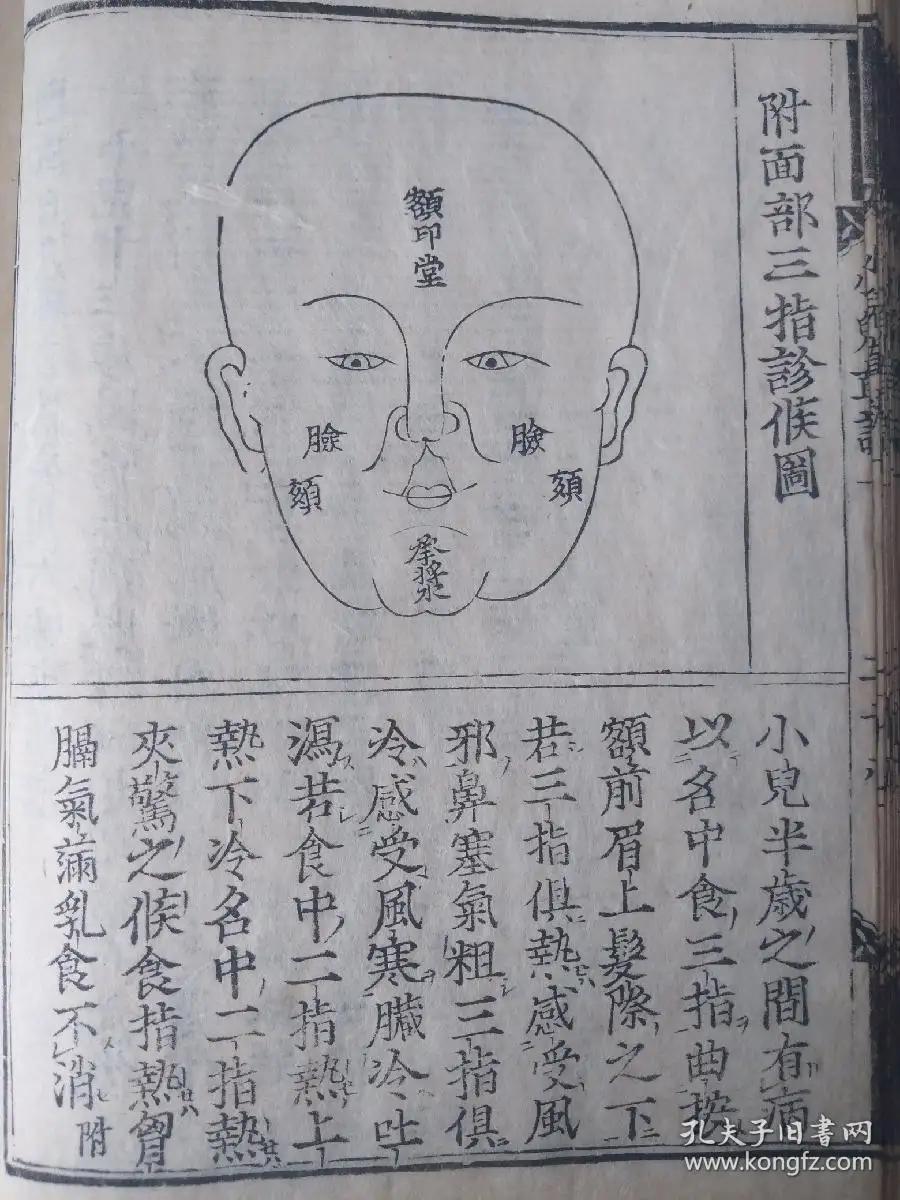 附面部三指診候圖
額印堂
臉
臉
頦
頦
承漿
小兒半歲之間有病
以名中食三指曲按
額前眉上髮際之下
若三指俱熱感受風
邪鼻塞氣粗三指俱
冷感受風寒臟冷吐
瀉若食中二指熱上
熱下冷名中二指熱
夾驚之候食指熱胷
膈氣滿乳食不消附
孔夫子旧书网
www.kongfz.com